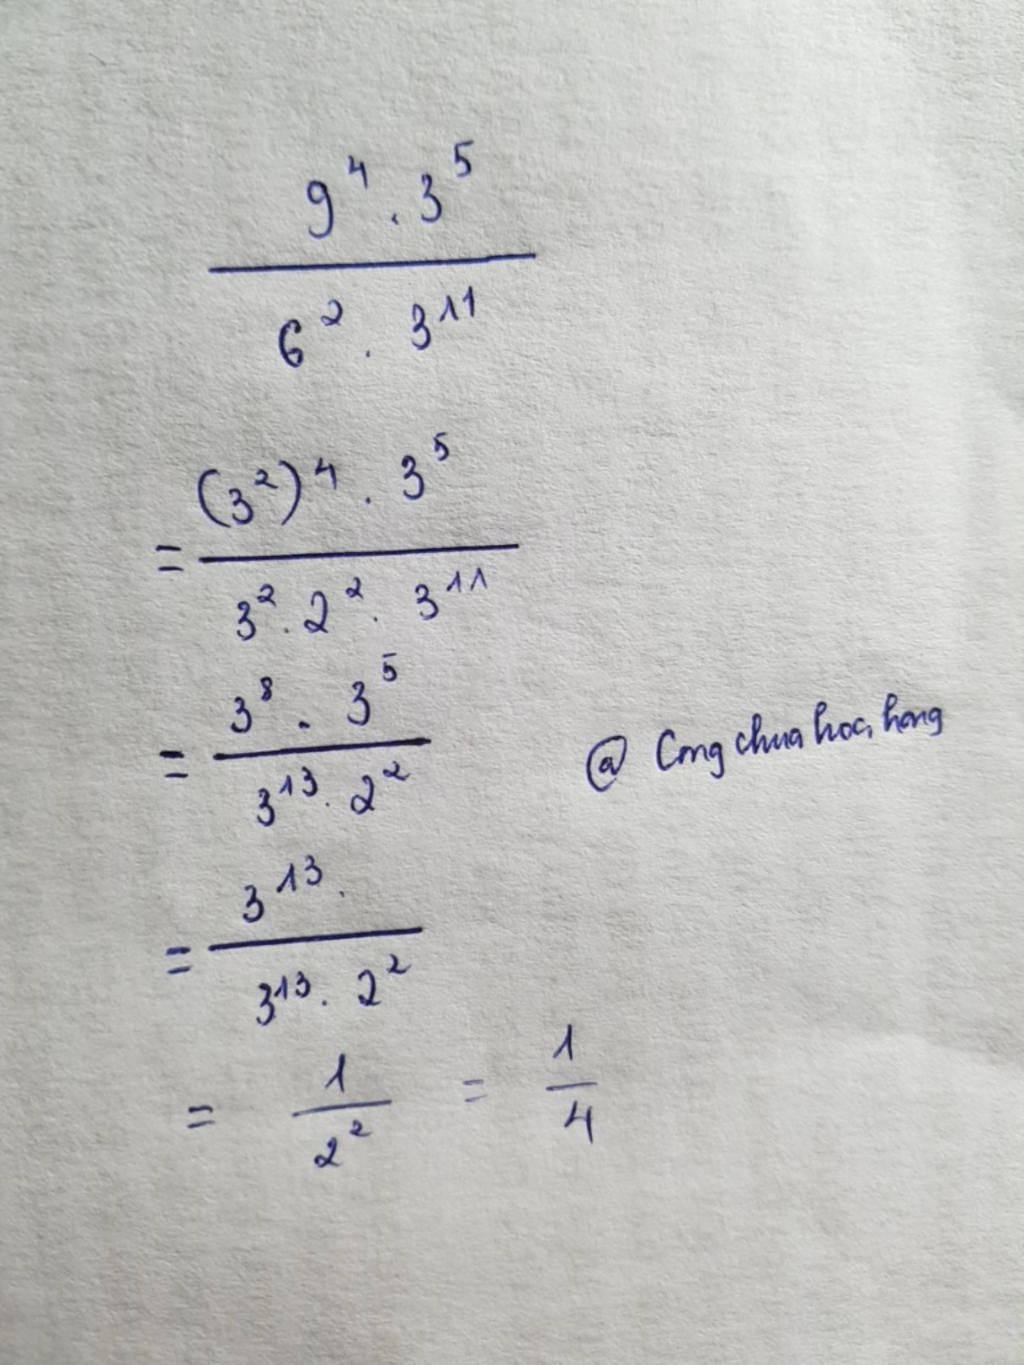 9⁴ . 3⁵
6² . 3¹¹
= (3²)⁴ . 3⁵
3² . 2² . 3¹¹
= 3⁸ . 3⁵
3¹³ . 2²
@ Congchuahoahong
= 3¹³ .
3¹³ . 2²
= 1 = 1
2² 4